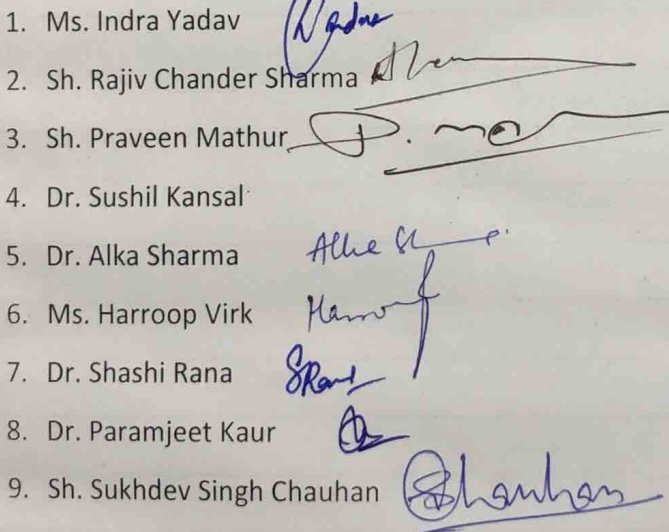 1. Ms. Indra Yadav
2. Sh. Rajiv Chander Sharma
3. Sh. Praveen Mathur P.
4. Dr. Sushil Kansal
5. Dr. Alka Sharma
6. Ms. Harroop Virk
7. Dr. Shashi Rana SRana
8. Dr. Paramjeet Kaur
9. Sh. Sukhdev Singh Chauhan SChauhan